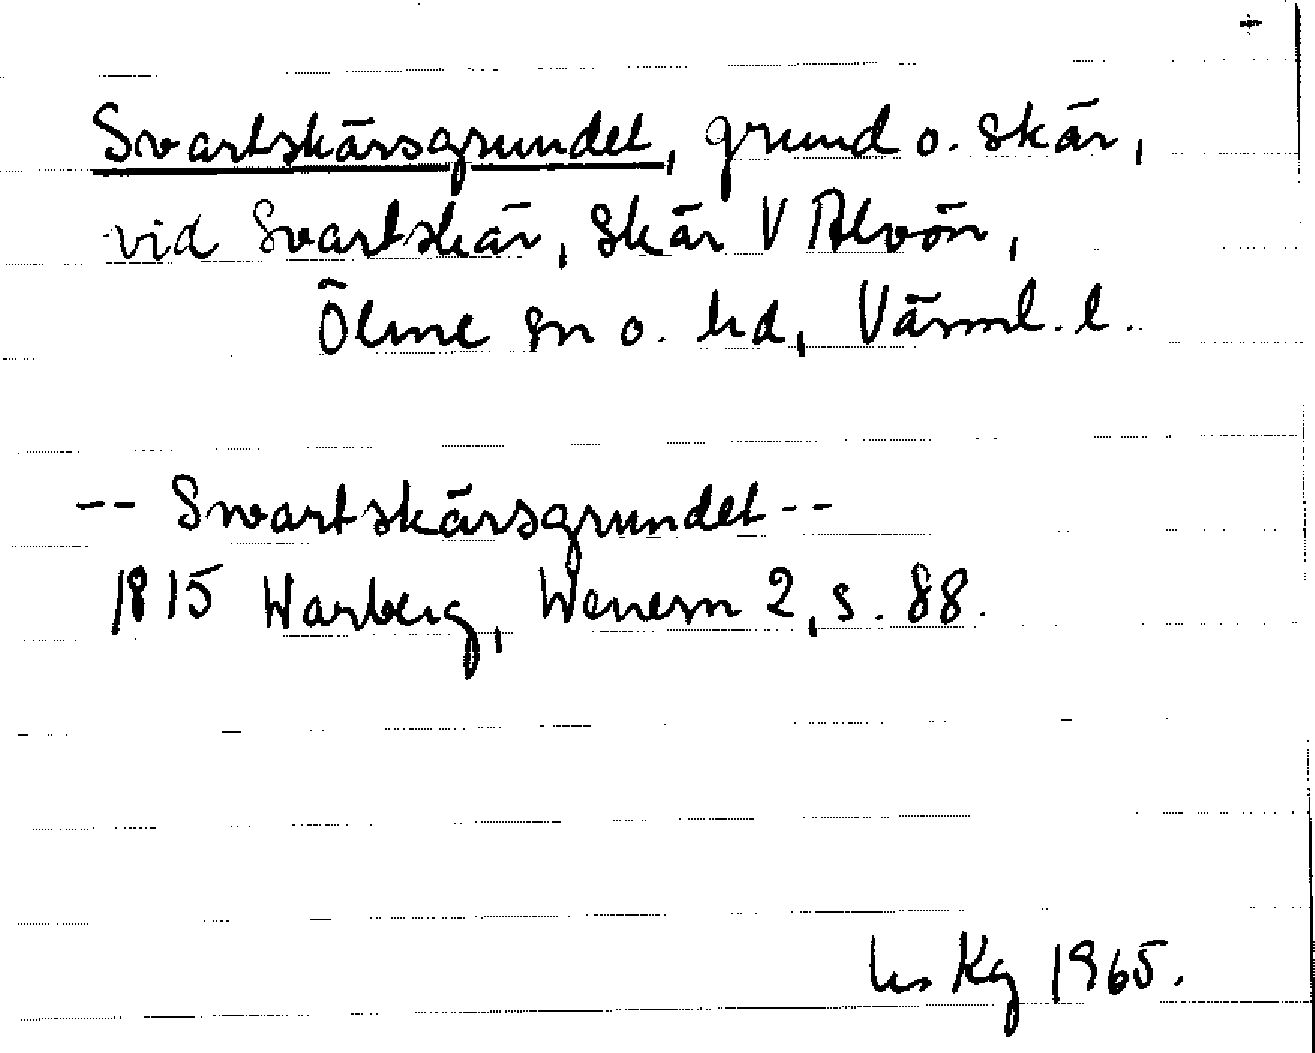 Svartskärsgrundet, grund o. skär,
vid Svartskär, skär V Alvön,
Ölme sn o. hd, Värml. l.
-- Swartskärsgrundet --
1815 Warberg, Wenern 2, s. 88.
Kg 1965.